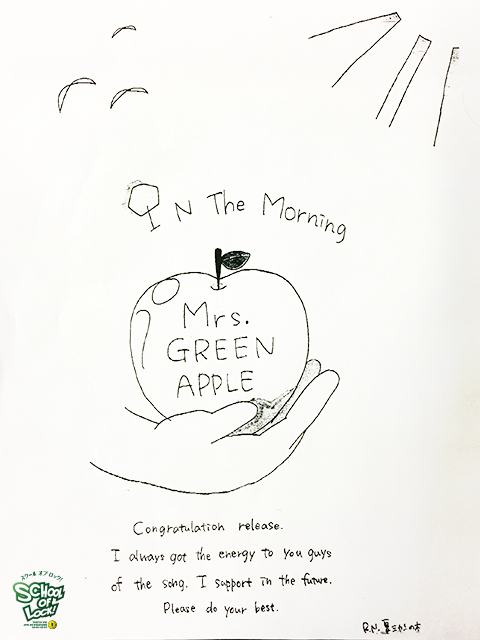 IN The Morning
Mrs.
GREEN
APPLE
Congratulation release.
I always got the energy to you guys
of the song. I support in the future.
Please do your best.
R.N.
スクール オブ ロック!
SCHOOL
OF
LOCK!